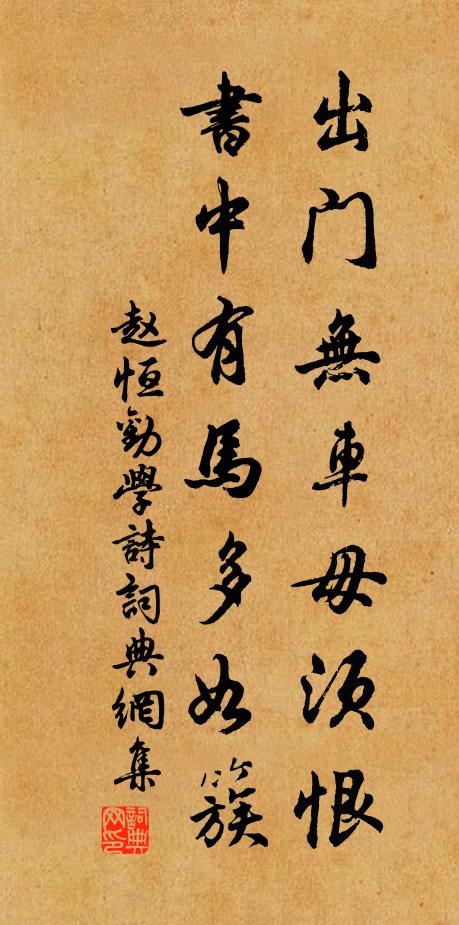 出門無車毋須恨
書中有馬多如簇
趙恒勸學詩詞典網集
詞典網印